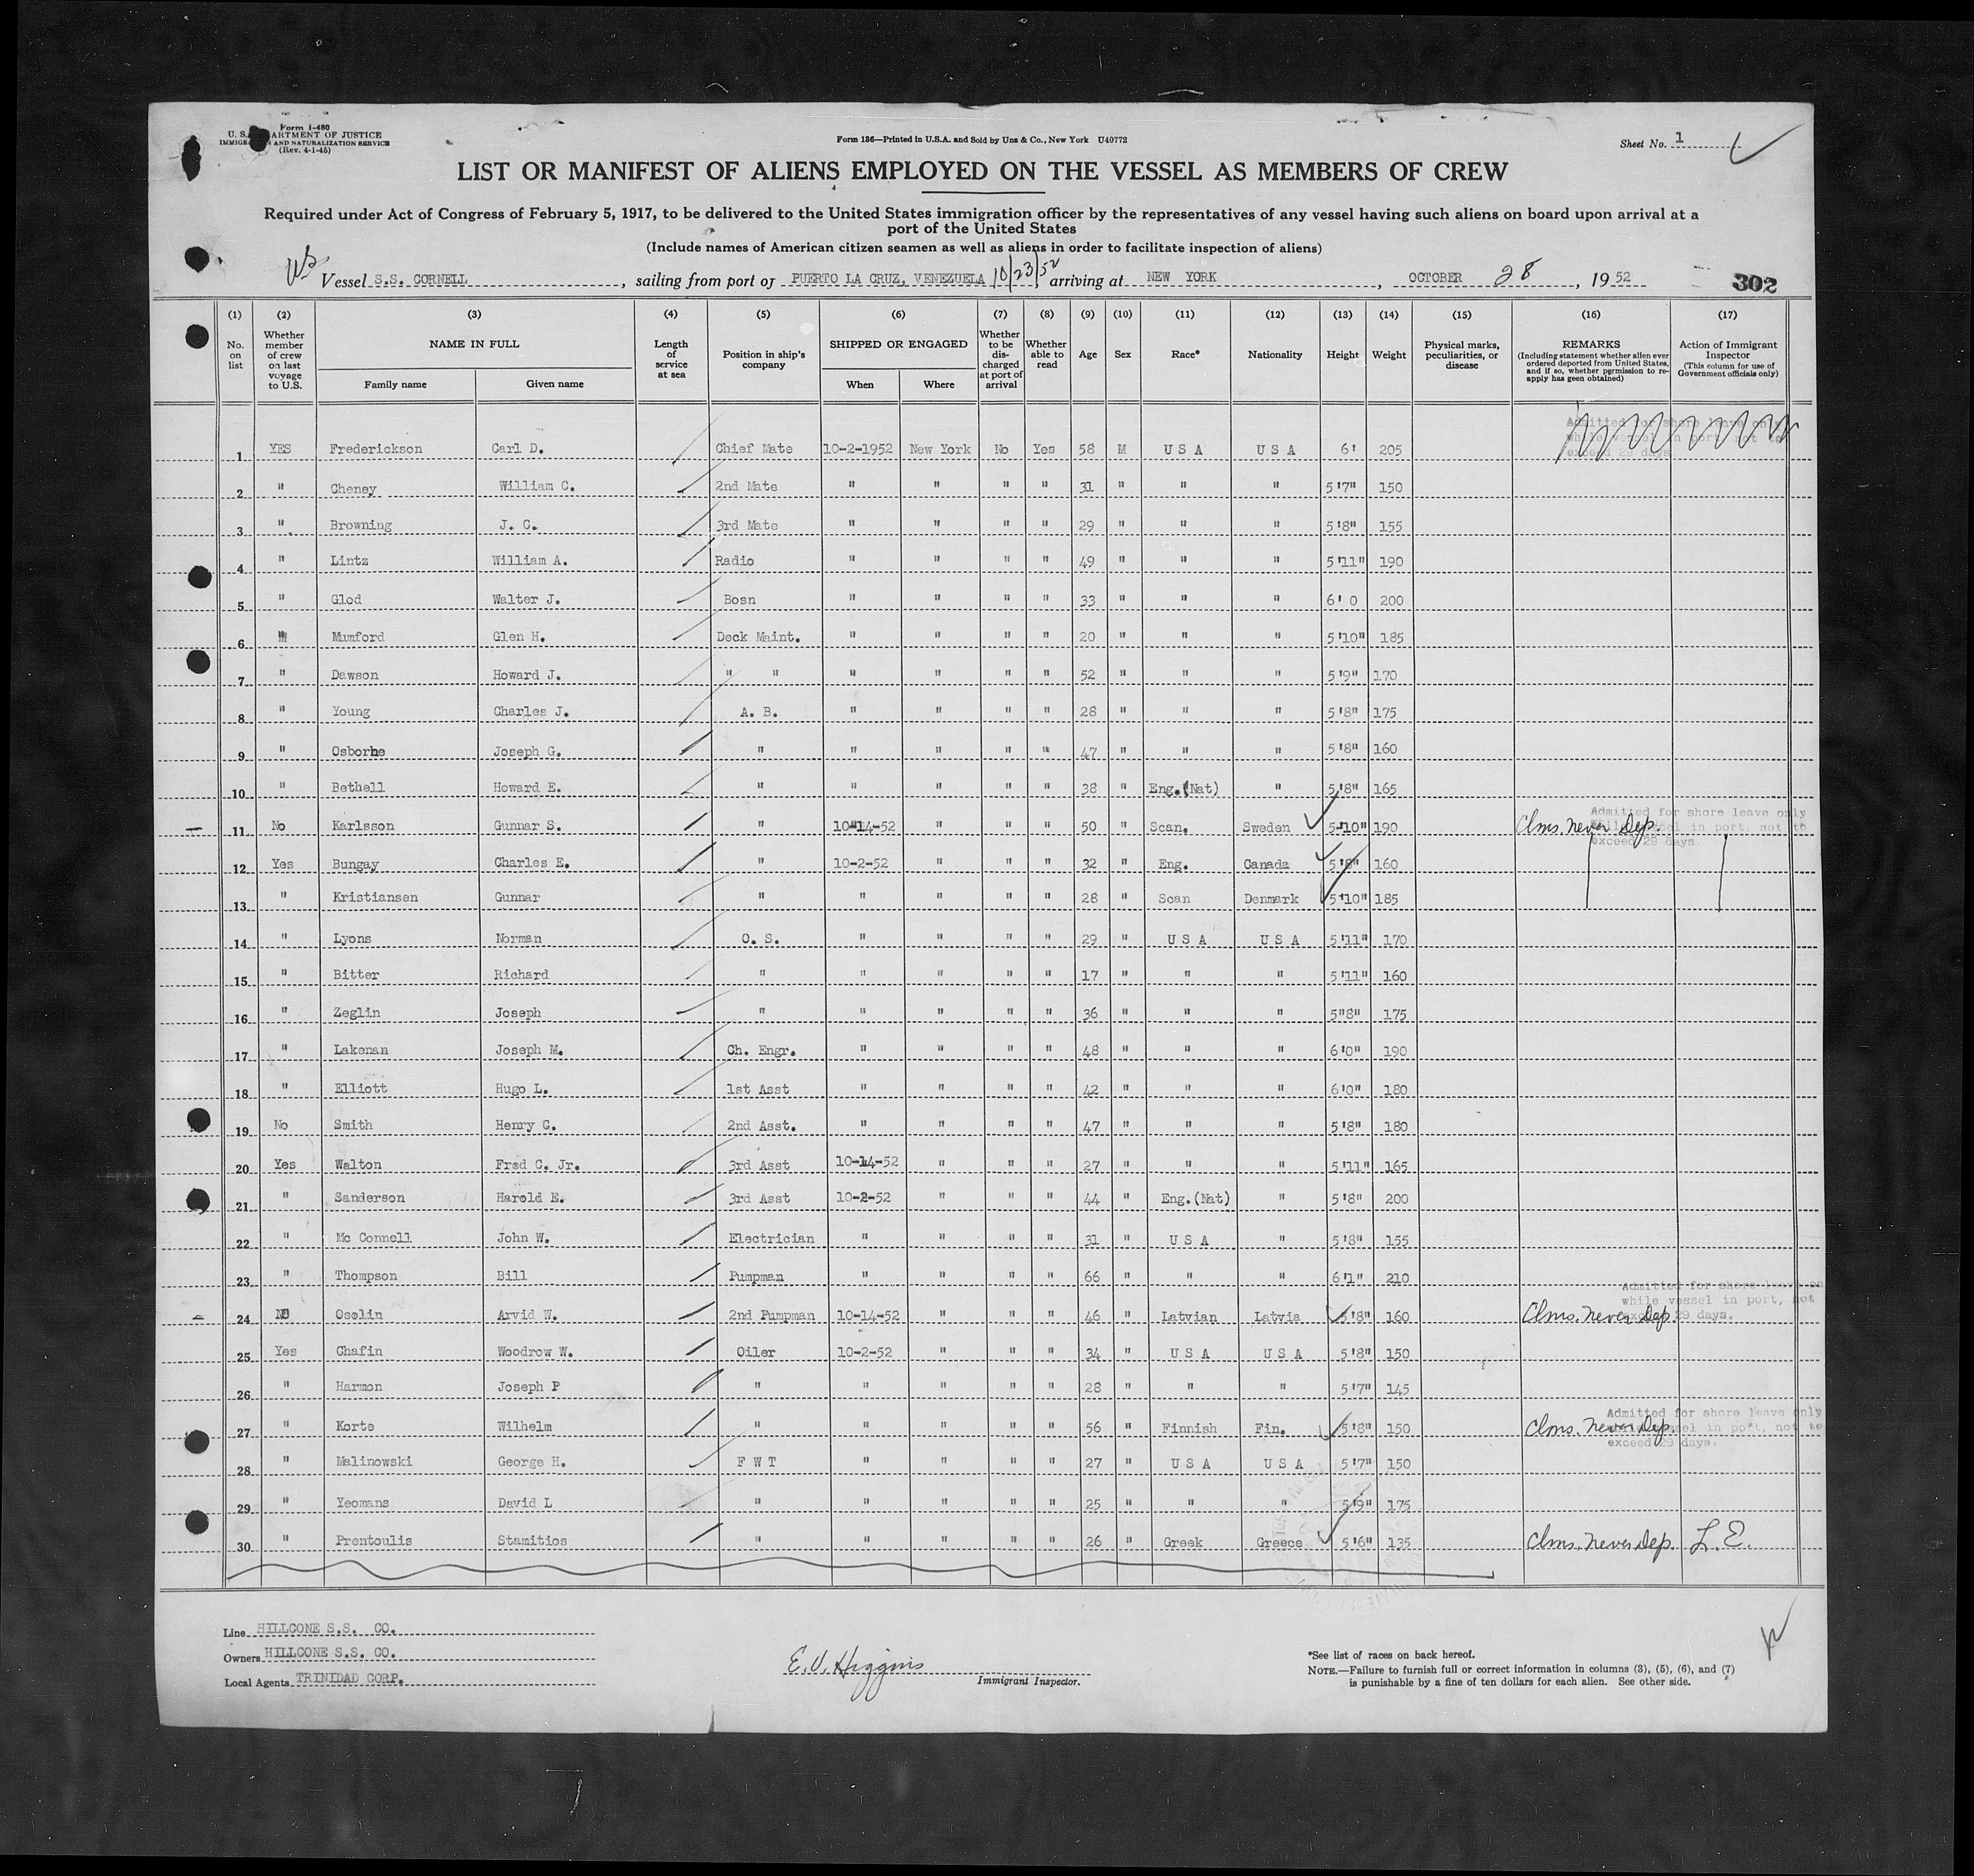 Form I-480
U. S. DEPARTMENT OF JUSTICE
IMMIGRATION AND NATURALIZATION SERVICE
(Rev. 4-1-45)
Form 136—Printed in U.S.A. and Sold by Unz & Co., New York U40772
Sheet No. 1
LIST OR MANIFEST OF ALIENS EMPLOYED ON THE VESSEL AS MEMBERS OF CREW
Required under Act of Congress of February 5, 1917, to be delivered to the United States immigration officer by the representatives of any vessel having such aliens on board upon arrival at a
port of the United States
(Include names of American citizen seamen as well as aliens in order to facilitate inspection of aliens)
US Vessel S.S. CORNELL, sailing from port of PUERTO LA CRUZ, VENEZUELA 10/23/52 arriving at NEW YORK, OCTOBER 28, 1952 302
(1) (2) (3) (4) (5) (6) (7) (8) (9) (10) (11) (12) (13) (14) (15) (16) (17)
No. on list
Whether member of crew on last voyage to U.S.
NAME IN FULL
Family name Given name
Length of service at sea
Position in ship's company
SHIPPED OR ENGAGED
When Where
Whether to be discharged at port of arrival
Whether able to read
Age
Sex
Race*
Nationality
Height
Weight
Physical marks, peculiarities, or disease
REMARKS
(Including statement whether alien ever ordered deported from United States, and if so, whether permission to re-apply has geen obtained)
Action of Immigrant Inspector
(This column for use of Government officials only)
Admitted for shore leave only
while vessel in port not to
exceed 29 days
1 YES Frederickson Carl D. Chief Mate 10-2-1952 New York No Yes 58 M U S A U S A 6' 205
2 " Cheney William C. 2nd Mate " " " " 31 " " " 5'7" 150
3 " Browning J. C. 3rd Mate " " " " 29 " " " 5'8" 155
4 " Lintz William A. Radio " " " " 49 " " " 5'11" 190
5 " Glod Walter J. Bosn " " " " 33 " " " 6' 0 200
6 " Mumford Glen H. Deck Maint. " " " " 20 " " " 5'10" 185
7 " Dawson Howard J. " " " " " " 52 " " " 5'9" 170
8 " Young Charles J. A. B. " " " " 28 " " " 5'8" 175
9 " Osborne Joseph G. " " " " " 47 " " " 5'8" 160
10 " Bethell Howard E. " " " " " 38 " Eng.(Nat) " 5'8" 165
11 No Karlsson Gunnar S. " 10-14-52 " " " 50 " Scan. Sweden 5'10" 190 Clms. never Dep. Admitted for shore leave only
while vessel in port, not to
exceed 29 days.
12 Yes Bungay Charles E. " 10-2-52 " " " 32 " Eng. Canada 5'8" 160
13 " Kristiansen Gunnar " " " " " 28 " Scan Denmark 5'10" 185
14 " Lyons Norman O. S. " " " " 29 " U S A U S A 5'11" 170
15 " Bitter Richard " " " " " 17 " " " 5'11" 160
16 " Zeglin Joseph " " " " " 36 " " " 5"8" 175
17 " Lakenan Joseph M. Ch. Engr. " " " " 48 " " " 6'0" 190
18 " Elliott Hugo L. 1st Asst " " " " 42 " " " 6'0" 180
19 No Smith Henry G. 2nd Asst. " " " " 47 " " " 5'8" 180
20 Yes Walton Fred C. Jr. 3rd Asst 10-14-52 " " " 27 " " " 5'11" 165
21 " Sanderson Harold E. 3rd Asst 10-2-52 " " " 44 " Eng.(Nat) " 5'8" 200
22 " Mc Connell John W. Electrician " " " " 31 " U S A " 5'8" 155
23 " Thompson Bill Pumpman " " " " 66 " " " 6'1" 210
Admitted for shore leave on
while vessel in port, not
24 NO Oselin Arvid W. 2nd Pumpman 10-14-52 " " " 46 " Latvian Latvia 5'8" 160 Clms. never Dep. exceed 29 days.
25 Yes Chafin Woodrow W. Oiler 10-2-52 " " " 34 " U S A U S A 5'8" 150
26 " Harmon Joseph P " " " " " 28 " " " 5'7" 145
27 " Korte Wilhelm " " " " " 56 " Finnish Fin. 5'8" 150 Clms. never Dep. Admitted for shore leave only
while vessel in port, not to
exceed 29 days.
28 " Malinowski George H. F W T " " " " 27 " U S A U S A 5'7" 150
29 " Yeomans David L " " " " " 25 " " " 5'9" 175
30 " Prentoulis Stamitios " " " " " 26 " Greek Greece 5'6" 135 Clms. never Dep. L. E.
Line HILLCONE S.S. CO.
Owners HILLCONE S.S. CO.
Local Agents TRINIDAD CORP.
E. V. Higgins
Immigrant Inspector.
*See list of races on back hereof.
NOTE.—Failure to furnish full or correct information in columns (3), (5), (6), and (7)
is punishable by a fine of ten dollars for each alien. See other side.